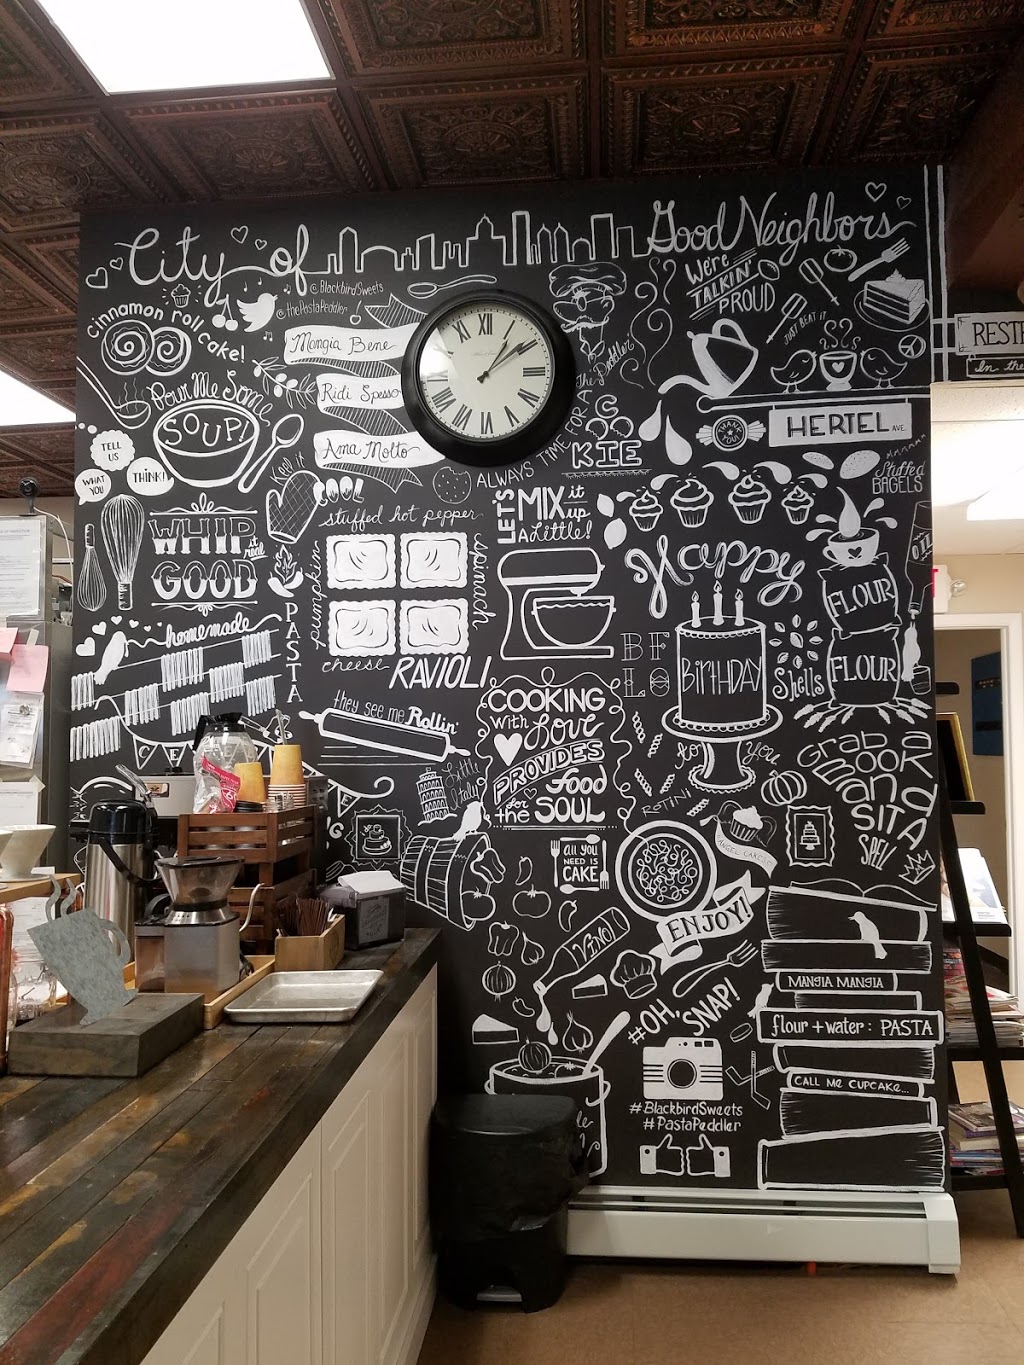 City of Good Neighbors
@BlackbirdSweets
@thePastaPeddler
cinnamon roll
cake!
Mangia Bene
Ridi Spesso
Ama Molto
XII
We're
TALKIN'
PROUD
JUST BEAT IT
THANK YOU!
HERTEL AVE.
RESTR
In the
Pour Me Some
SOUP!
TELL
US
WHAT
YOU
THINK!
KEEP IT
COOL
ALWAYS TIME FOR A
The Peddler
COOKIE
Stuffed
BAGELS
WHIP
it real
GOOD
stuffed hot pepper
pumpkin
spinach
cheese
RAVIOLI
LETS
MIX it
up
A Little!
Happy
BIRTHDAY
for you
FLOUR
FLOUR
OIL
homemade
PASTA
they see me Rollin'
BF
LO
Shells
COOKING
with Love
PROVIDES
Food
for the SOUL
Little
Italy
ROTINI
Grab a
BOOK
and
SITA
SPELL
all you
NEED IS
CAKE
ANGEL CAKES
ENJOY!
VINO
#OH, SNAP!
#BlackbirdSweets
#PastaPeddler
MANGIA MANGIA
flour + water: PASTA
CALL ME CUPCAKE...